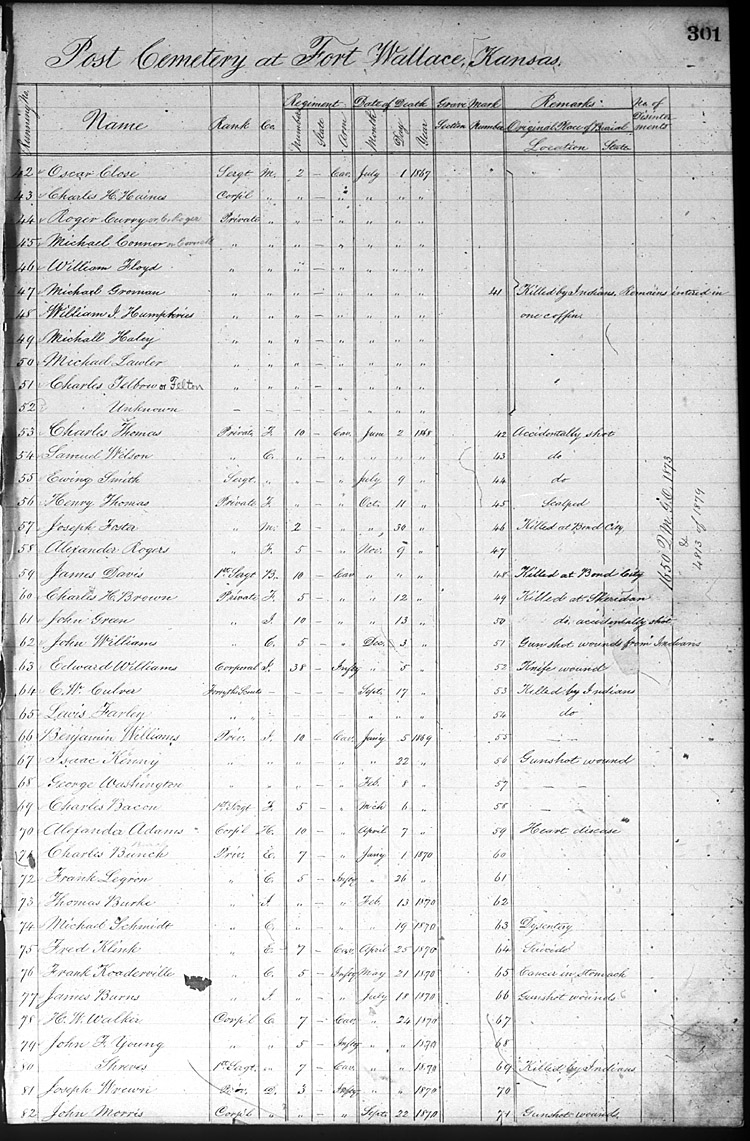 301
Post Cemetery at Fort Wallace, Kansas.
Running No. Name Rank Co. Regiment Number State Arm Date of Death Month Day Year Grave Mark Section Number Remarks Original Place of Burial Location State No. of Disinterments
42 Oscar Close Sergt M. 2 — Cav. July 1 1867 "
43 Charles H. Haines Corp'l " " — " " " "
44 Roger Curry or C. Roger Private " " — " " " "
45 Michael Connor or Connell " " " — " " " "
46 William Floyd " " " — " " " "
47 Michael Groman " " " — " " " " 41 Killed by Indians. Remains intered in
48 William I. Humphries " " " — " " " " one coffin.
49 Michall Haley " " " — " " " "
50 Michael Lawler " " " — " " " "
51 Charles Telbow or Felton " " " — " " " " "
52 Unknown — — — — — " " "
53 Charles Thomas Private F. 10 — Cav. June 2 1868 42 Accidentally shot
54 Samuel Wilson " C. " — " " " " 43 do
55 Ewing Smith Sergt. " " — " July 9 " 44 do
56 Henry Thomas Private F. " — " Oct. 11 " 45 Scalped
57 Joseph " M. 2 — " " 30 " 46 Killed at Bond City
58 Alexander Rogers " F. 5 — " Nov. 9 " 47 "
59 James Davis 1st Sergt B. 10 — Cav " " " 48 Killed at Bond City
60 Charles H. Brown Private F. 5 — " " 12 " 49 Killed at Sheridan
61 John Green " I. 10 — " " 13 " 50 " do, accidentally shot
62 John Williams " C. 5 — " Dec. 3 " 51 Gun shot wounds from Indians
63 Edward Williams Corporal I. 38 — Infty " 5 " 52 Knife wound
64 C. W. Culver Forsyth Scouts — — — — Sept. 17 " 53 Killed by Indians
65 Lewis Farley " " — — — — " " " 54 do
66 Benjamin Williams Priv. I. 10 — Cav. Jan'y 5 1869 55 — —
67 Isaac Kenny " " " — " " 22 " 56 Gunshot wound
68 George Washington " " " — " Feb. 8 " 57 — —
69 Charles Bacon 1st Sergt F. 5 — " Mch 6 " 58 —
70 Alexander Adams Corp'l H. 10 — " April 7 " 59 Heart disease
71 Charles Bunch Priv. E. 7 — " Jan'y 1 1870 60
72 Frank Legron " C. 5 — Infty " 26 " 61
73 Thomas Burke " A " — " Feb. 13 1870 62
74 Michael Schmidt " C. " — " " 19 1870 63 Dysentery
75 Fred Klink " E. 7 — Cav. April 25 1870 64 Suicide
76 Frank Koaderville " C. 5 — Infty May 21 1870 65 Cancer in Stomach
77 James Burns " A " — " July 18 1870 66 Gunshot wounds
78 H. W. Walker Corp'l C. 7 — Cav. " 24 1870 67
79 John F. Young " " 5 — Infty " " 1870 68
80 Shreves 1st Sergt. " 7 — Cav. " " 1870 69 Killed by Indians
81 Joseph Priv. D. 3 — Infty " " 1870 70
82 John Morris Corp'l " " — " Sept. 22 1870 71 Gunshot wound.
1650 Q.M.G.O. 1873
&
4813 of 1879